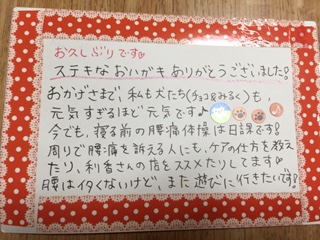 お久しぶりです♡
ステキなおハガキありがとうございました!
おかげさまで、私も犬たち(チョコ&みるく)も、
元気すぎるほど元気です♪
今でも、寝る前の腰痛体操は日課です!
周りで腰痛を訴える人にも、ケアの仕方を教え
たり、利香さんの店をススメたりしてます♡
腰はイタくないけど、また遊びに行きたいです!